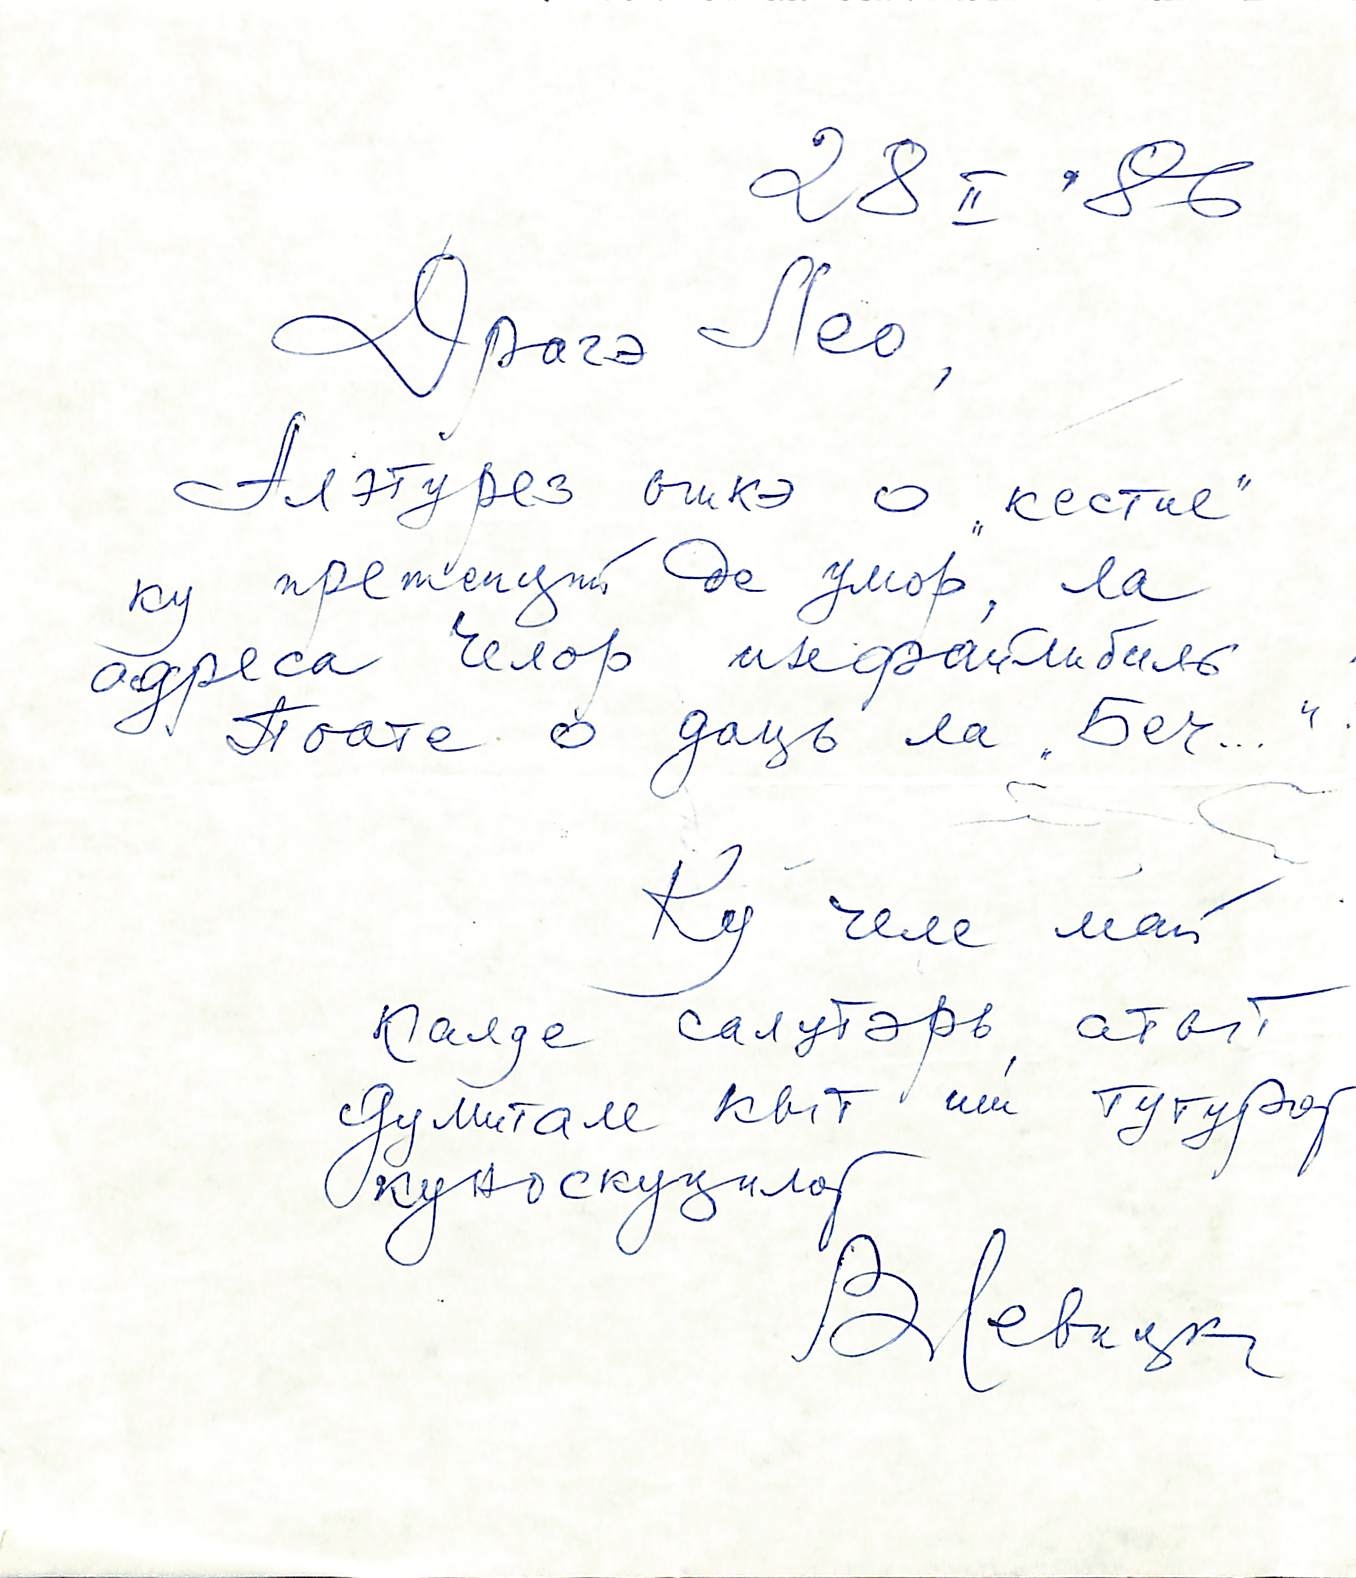 28 II '86
Драгэ Лео,
Алэтурез ынкэ о „кестие"
ку претенций де умор, ла
адреса челор инфаилибиль
Поате о даць ла „Беч..."
Ку челе май
калде салутэрь, атыт
думитале кыт ши тутурор
куноскуцилор
В Левицки